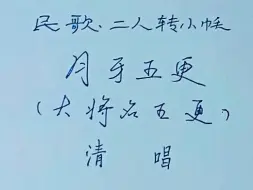 民歌.二人转小帐
月牙五更
(大将名五更)
清 唱